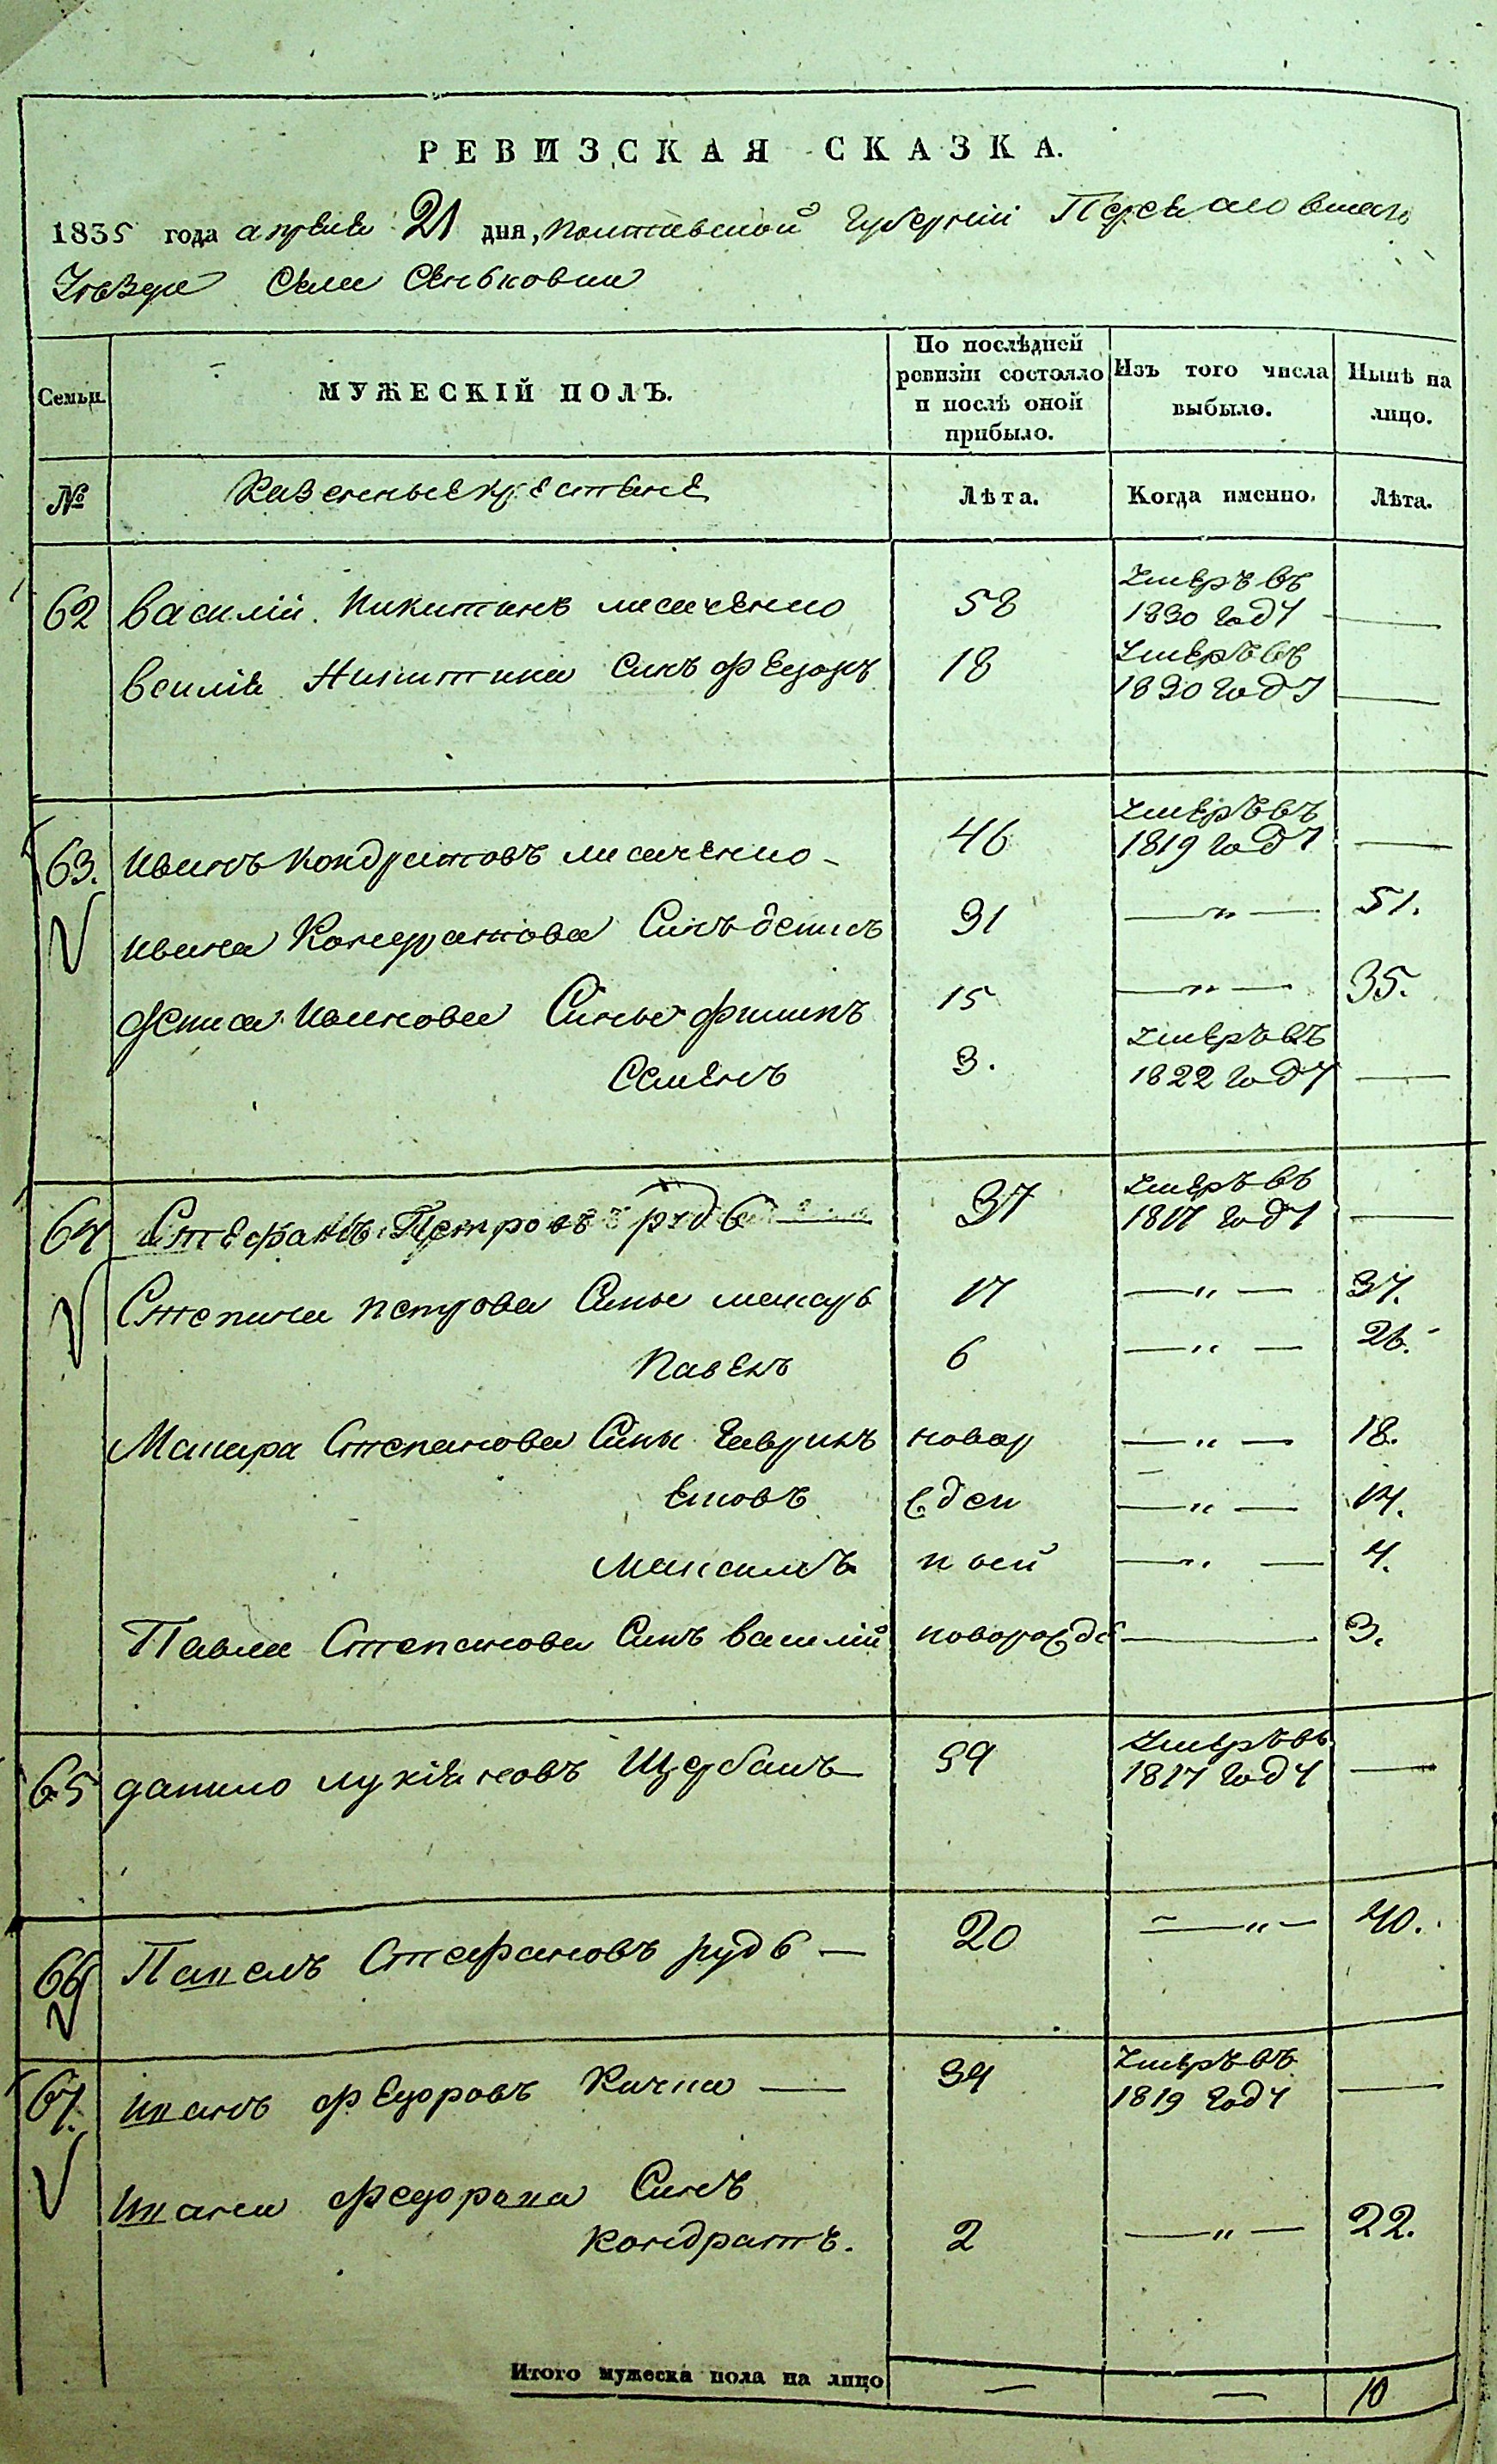 РЕВИЗСКАЯ СКАЗКА.
1835 года апреля 21 дня, Полтавской Губернии Переяславскаго
Уезда Села Сеньковки
Семьи.
МУЖЕСКІЙ ПОЛЪ.
По послѣдней ревизіи состояло и послѣ оной прибыло.
Изъ того числа выбыло.
Нынѣ на лицо.
№
Казенные крестяне
Лѣта.
Когда именно.
Лѣта.
62 Василий Никитинъ лисаченко 58 Умеръ въ 1830 году —
Василия Никитина Синъ федоръ 18 Умеръ въ 1830 году —
63. Иванъ Кондратовъ лисаченко 46 Умеръ въ 1819 году —
Ивана Кондратова Синъ денисъ 31 — " — 51.
Дениса Иванова Сины филипъ 15 — " — 35.
Семенъ 3. Умеръ въ 1822 году —
64 Стефанъ Петровъ рудь 37 Умеръ въ 1817 году —
Степана Петрова Сины макаръ 17 — " — 37.
Павелъ 6 — " — 26.
Макара Степанова Сины Гаврилъ новор — " — 18.
Яковъ жден — " — 14.
Максимъ ный — " — 4.
Павла Степанова Синъ василий новорожде — 3.
65 данило лукияновъ Щербакъ 59 Умеръ въ 1817 году —
66 Павелъ Стефановъ рудь — 20 — " — 40.
67. Иванъ федоровъ Кичка — 34 Умеръ въ 1819 году —
Ивана федорова Синъ
Кондратъ. 2 — " — 22.
Итого мужеска пола на лицо — — 10